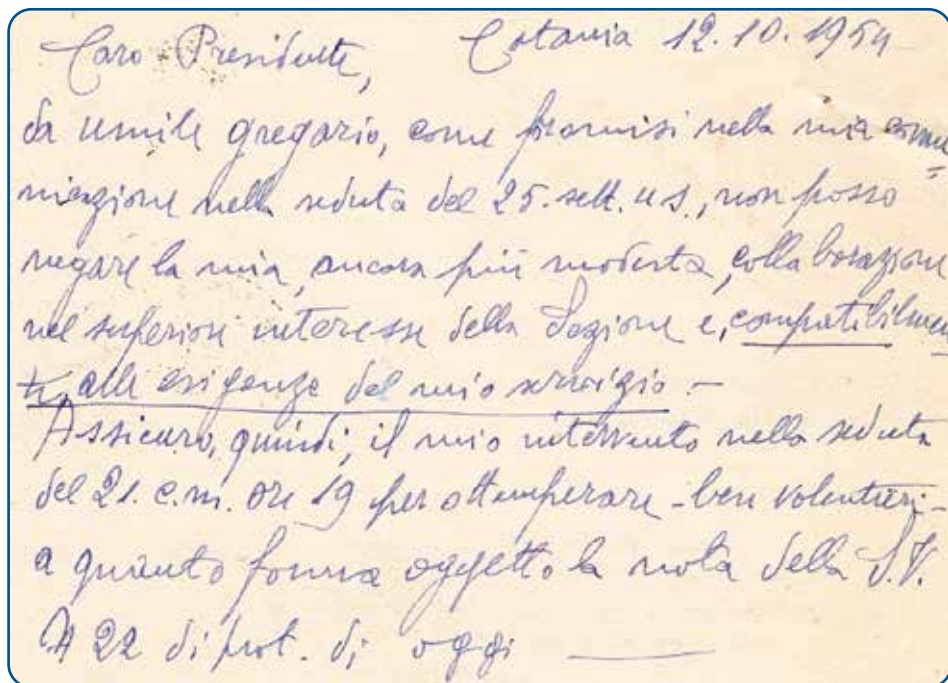 Caro Presidente, Catania 12.10.1954
da umile gregario, come promisi nella mia comu=
nicazione nella seduta del 25. sett. u.s., non posso
negare la mia, ancora più modesta, collaborazione
nel superiore interesse della Sezione e, compatibilmen
te, alle esigenze del mio servizio. –
Assicuro, quindi, il mio intervento nella seduta
del 21. c.m. ore 19 per ottemperare - ben volentieri -
a quanto forma oggetto la nota della S.V.
N 22 di prot. di oggi